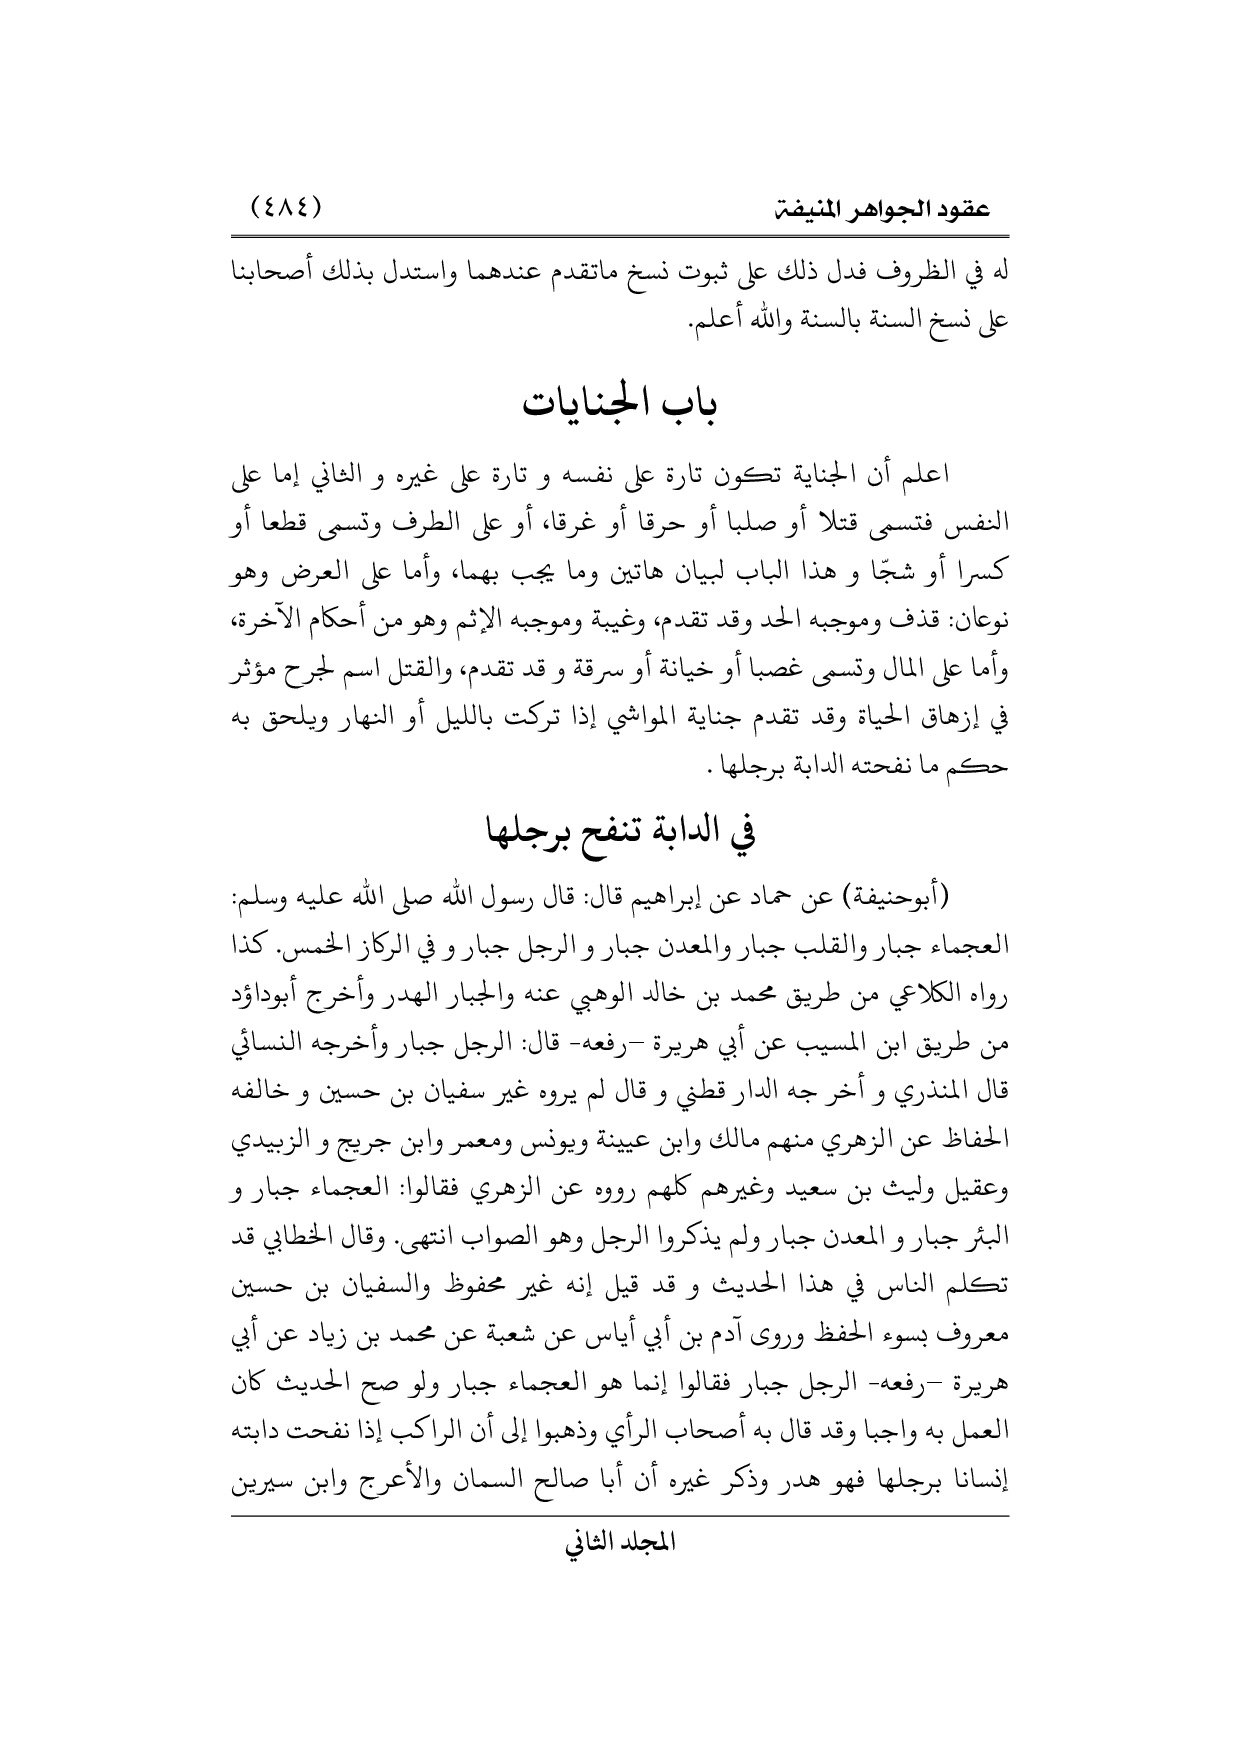 عقود الجواهر المنيفة (٤٨٤)
له في الظروف فدل ذلك على ثبوت نسخ ماتقدم عندهما واستدل بذلك أصحابنا
على نسخ السنة بالسنة والله أعلم.
باب الجنايات
اعلم أن الجناية تكون تارة على نفسه و تارة على غيره و الثاني إما على
النفس فتسمى قتلا أو صلبا أو حرقا أو غرقا، أو على الطرف وتسمى قطعا أو
كسرا أو شجّا و هذا الباب لبيان هاتين وما يجب بهما، وأما على العرض وهو
نوعان: قذف وموجبه الحد وقد تقدم، وغيبة وموجبه الإثم وهو من أحكام الآخرة،
وأما على المال وتسمى غصبا أو خيانة أو سرقة و قد تقدم، والقتل اسم لجرح مؤثر
في إزهاق الحياة وقد تقدم جناية المواشي إذا تركت بالليل أو النهار ويلحق به
حكم ما نفحته الدابة برجلها .
في الدابة تنفح برجلها
(أبوحنيفة) عن حماد عن إبراهيم قال: قال رسول الله صلى الله عليه وسلم:
العجماء جبار والقلب جبار والمعدن جبار و الرجل جبار و في الركاز الخمس. كذا
رواه الكلاعي من طريق محمد بن خالد الوهبي عنه والجبار الهدر وأخرج أبوداؤد
من طريق ابن المسيب عن أبي هريرة –رفعه- قال: الرجل جبار وأخرجه النسائي
قال المنذري و أخر جه الدار قطني و قال لم يروه غير سفيان بن حسين و خالفه
الحفاظ عن الزهري منهم مالك وابن عيينة ويونس ومعمر وابن جريج و الزبيدي
وعقيل وليث بن سعيد وغيرهم كلهم رووه عن الزهري فقالوا: العجماء جبار و
البئر جبار و المعدن جبار ولم يذكروا الرجل وهو الصواب انتهى. وقال الخطابي قد
تكلم الناس في هذا الحديث و قد قيل إنه غير محفوظ والسفيان بن حسين
معروف بسوء الحفظ وروى آدم بن أبي أياس عن شعبة عن محمد بن زياد عن أبي
هريرة –رفعه- الرجل جبار فقالوا إنما هو العجماء جبار ولو صح الحديث كان
العمل به واجبا وقد قال به أصحاب الرأي وذهبوا إلى أن الراكب إذا نفحت دابته
إنسانا برجلها فهو هدر وذكر غيره أن أبا صالح السمان والأعرج وابن سيرين
المجلد الثاني